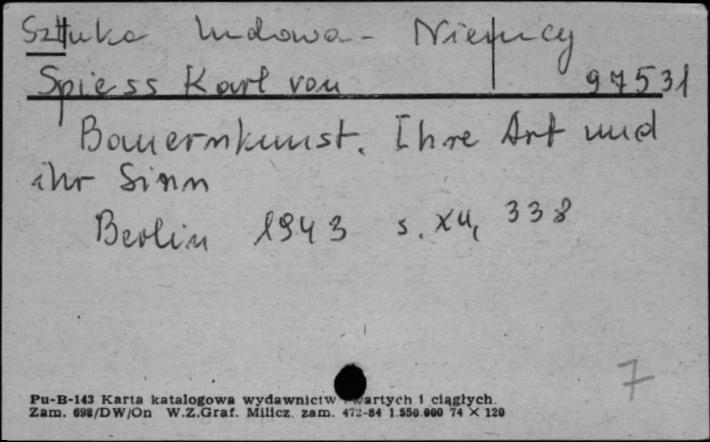 Sztuka ludowa - Niemcy
Spiess Karl von 97531
Bauernkunst. Ihre Art und
ihr Sinn
Berlin 1943 s. XII, 338
7
Pu-B-143 Karta katalogowa wydawnictw zwartych i ciągłych.
Zam. 698/DW/On W.Z.Graf. Milicz. zam. 472-84 1.550.000 74 X 120